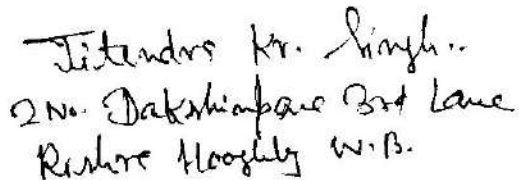 Jitendra Kr. Singh..
2 No. Dakshinpara 3rd Lane
Rishra Hooghly W.B.